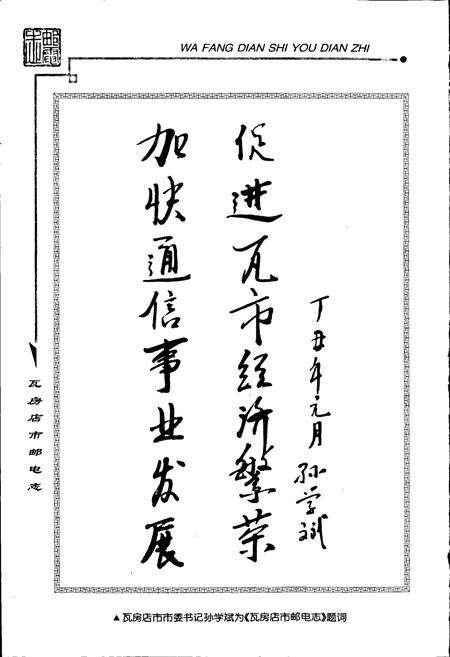 WA FANG DIAN SHI YOU DIAN ZHI
瓦房店市邮电志
加快通信事业发展
促进瓦市经济繁荣
丁丑年元月 孙学斌
▲瓦房店市市委书记孙学斌为《瓦房店市邮电志》题词